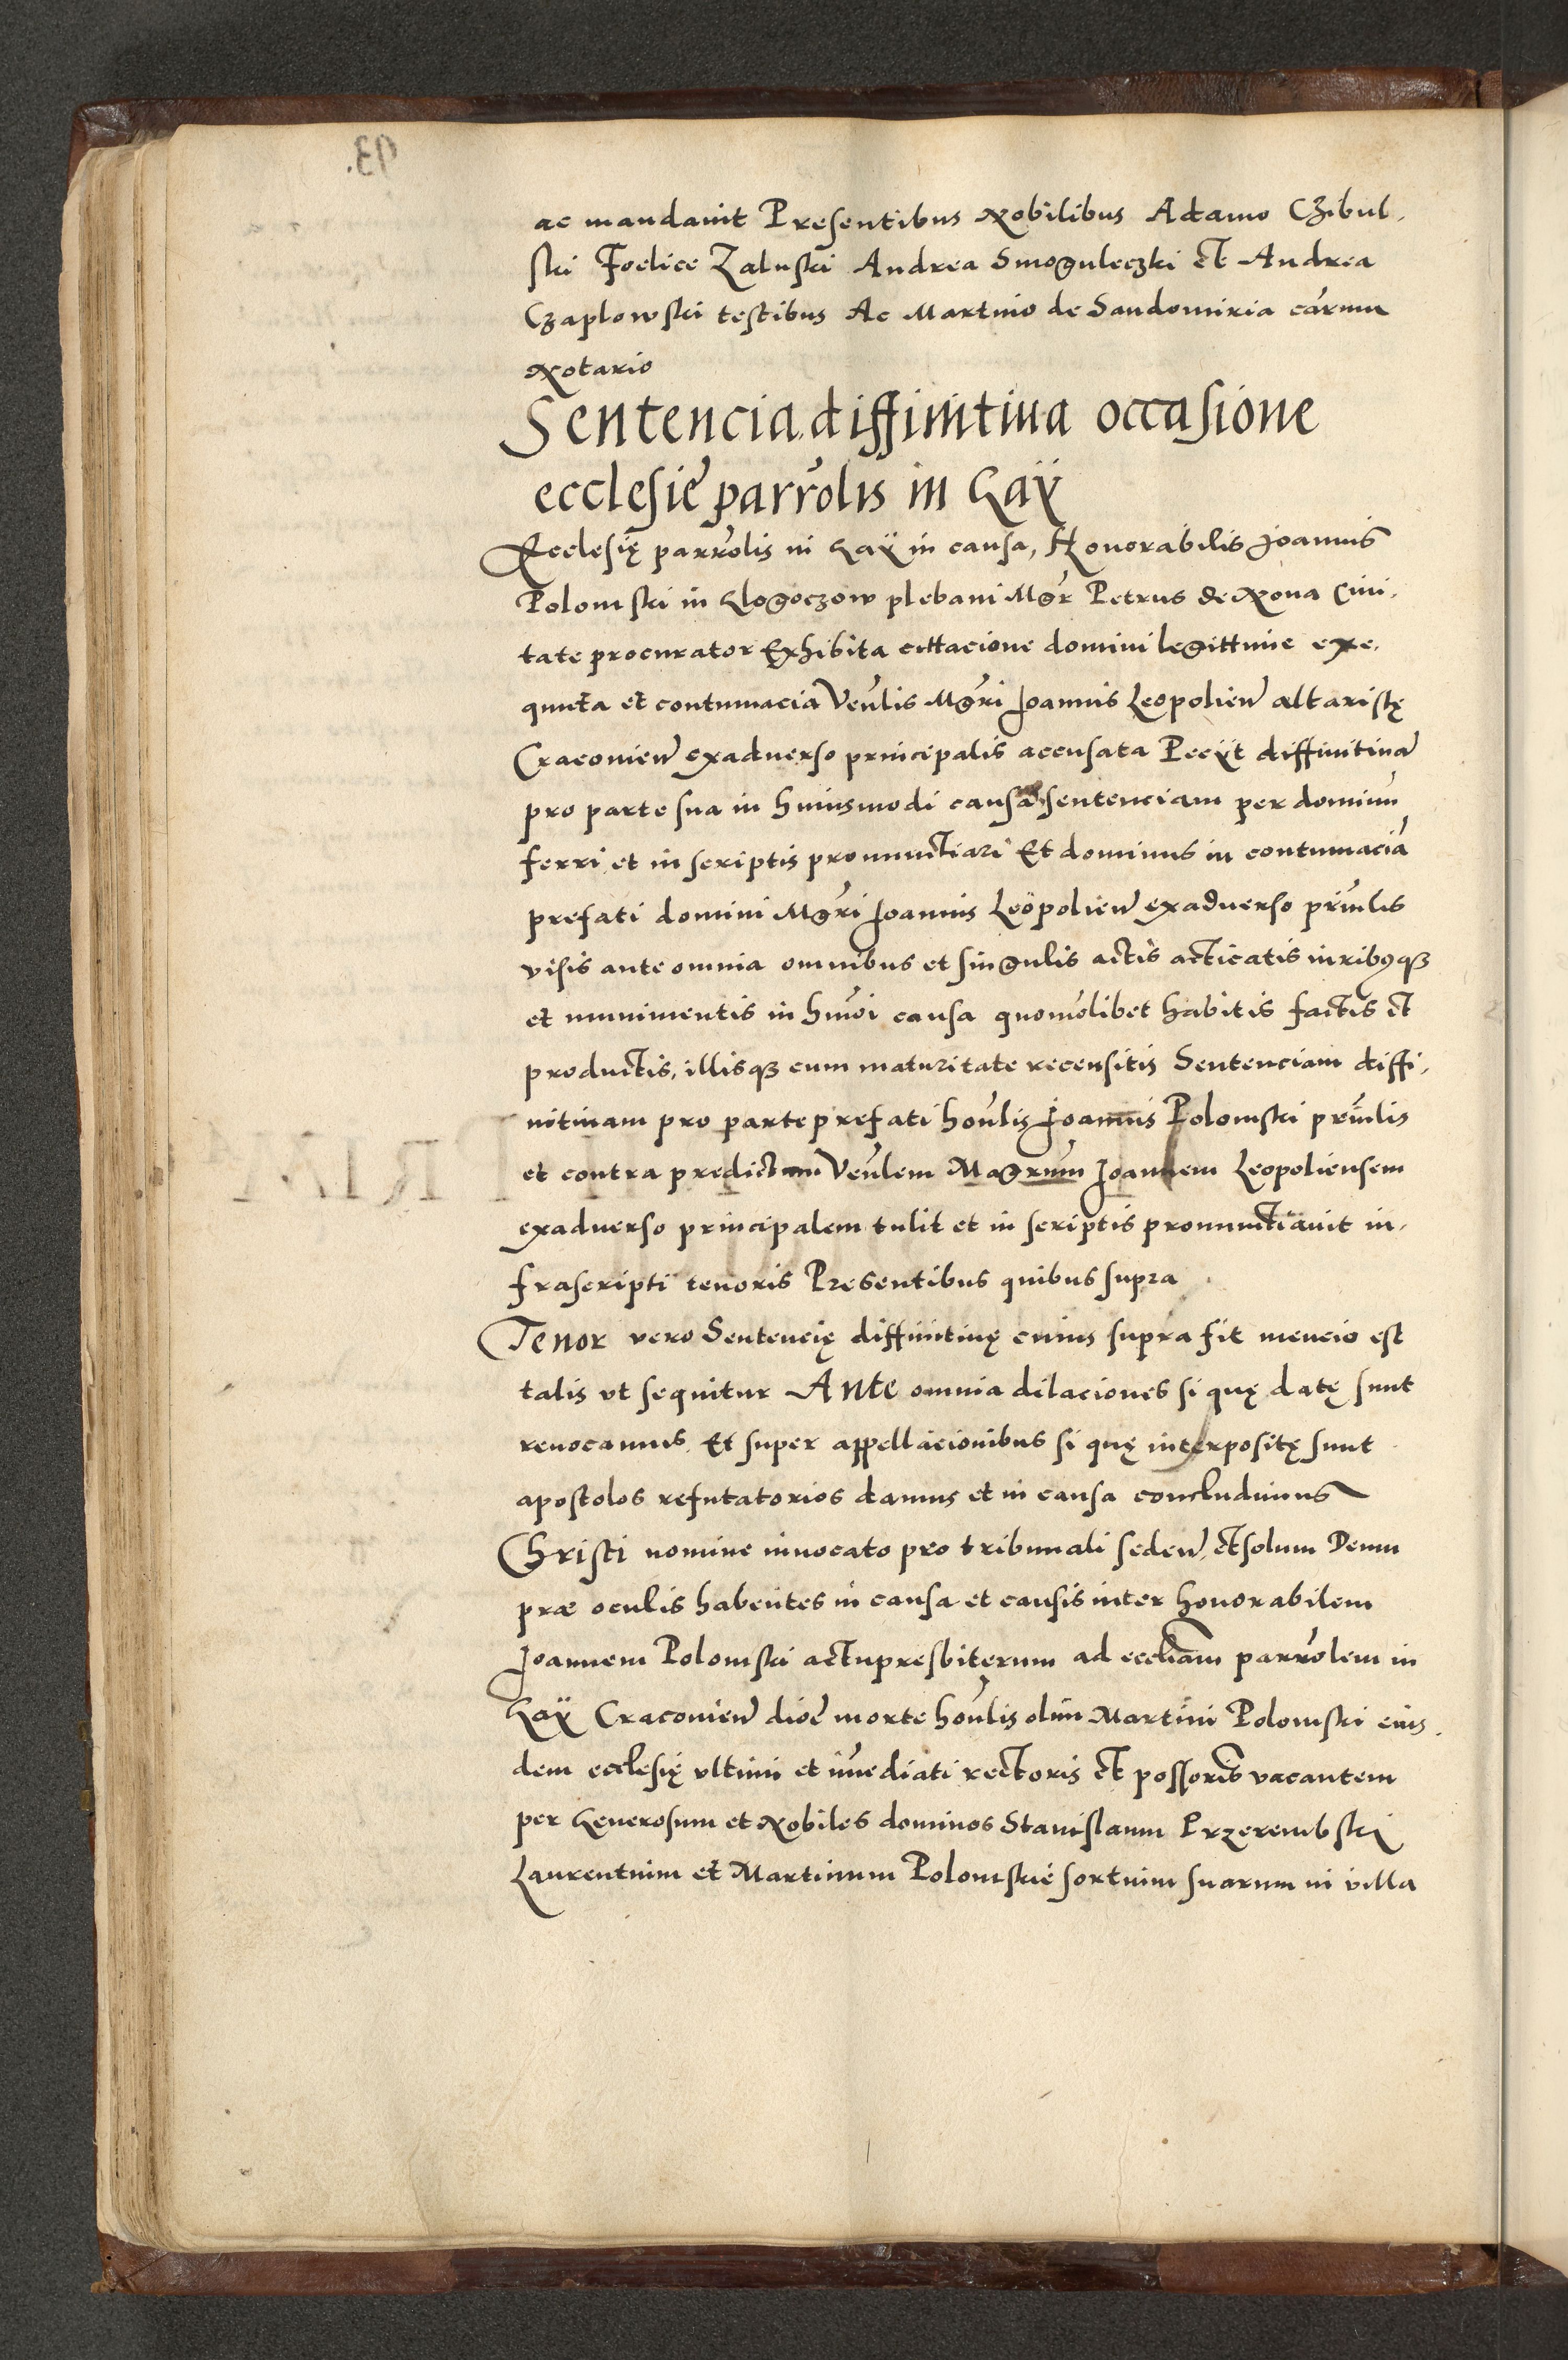 ac mandauit Presentibus Nobilibus Adamo Czibul,
ski Foelice Zaluski Andrea Smoguleczki et Andrea
Czaplowski testibus Ac Martino de Sandomiria carum
Notario
Sentencia diffinitiua occasione
ecclesie parrolis in Gaÿ
Ecclesię parrolis in Gaÿ in causa, Honorabilis Joannis
Polomski in Glogoczow plebani Mgr Petrus de Noua Ciui,
tate procurator Exhibita cittacione domini legittime exe,
quuta et contumacia Venlis Mgri Joannis Leopolien altaristę
Cracouien exaduerso principalis accusata Peciit diffinitiua
pro parte sua in huiusmodi causa sententiam per dominu
ferri et in scriptis pronunctiari Et dominus in contumacia
prefati domini Mgri Joannis Leopolien exaduerso prinlis
visis ante omnia omnibus et singulis actis acticatis iuribusq3
et munimentis in hmoi causa quomolibet habitis factis et
productis, illisq3 cum maturitate recensitis Sentenciam diffi,
nitiuam pro parte prefati honlis Joannis Polomski prinlis
et contra predictum Venlem Magrum Joannem Leopoliensem
exaduerso principalem tulit et in scriptis pronunctiauit in,
frascripti tenoris Presentibus quibus supra
Tenor vero Sentencię diffinitiuę cuius supra fit mencio est
talis vt sequitur Ante omnia dilaciones si quę datę sunt
reuocamus Et super appellacionibus si quę interpositę sunt
apostolos refutatorios damus et in causa concludimus
Christi nomine inuocato pro tribunali seden et solum Deum
præ oculis habentes in causa et causis inter honorabilem
Joannem Polomski actu presbiterum ad eccliam parrolem in
Gaÿ Cracouien dioc morte honlis olim Martini Polomski eius,
dem ecclesię vltimi et imediati rectoris et possoris vacantem
per Generosum et Nobiles dominos Stanislaum Przerembski
Laurentium et Martinum Polomskie sortium suarum in villa